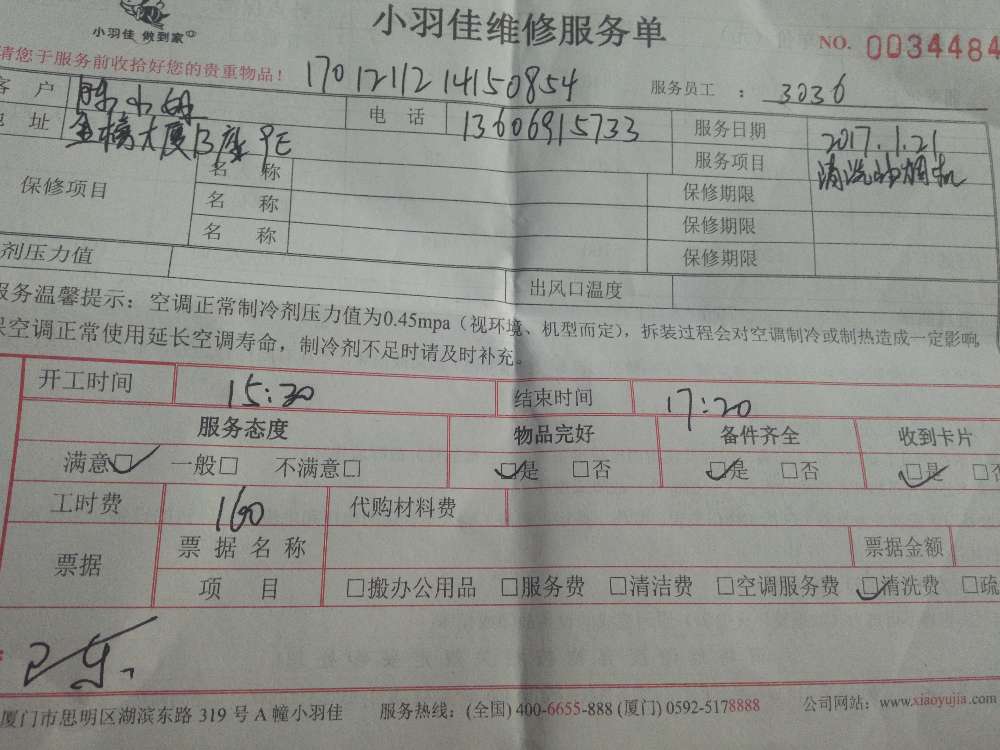 小羽佳 做到家
小羽佳维修服务单
NO. 0034484
请您于服务前收拾好您的贵重物品！
1701211214150854
服务员工 ： 3036
客 户 陈小
电 话 13606915733
服务日期 2017.1.21
地 址 金榜大厦B座9E
服务项目 清洗油烟机
保修项目
名 称 保修期限
名 称 保修期限
名 称 保修期限
剂压力值
出风口温度
服务温馨提示：空调正常制冷剂压力值为0.45mpa（视环境、机型而定），拆装过程会对空调制冷或制热造成一定影响，
保空调正常使用延长空调寿命，制冷剂不足时请及时补充。
开工时间 15:30 结束时间 17:20
服务态度 物品完好 备件齐全 收到卡片
满意☑ 一般□ 不满意□ ☑是 □否 ☑是 □否 ☑是 □否
工时费 160 代购材料费
票据 票 据 名 称 票据金额
项 目 □搬办公用品 □服务费 □清洁费 □空调服务费 ☑清洗费 □疏
厦门市思明区湖滨东路 319 号 A 幢小羽佳 服务热线：(全国) 400-6655-888 (厦门) 0592-5178888 公司网站：www.xiaoyujia.com